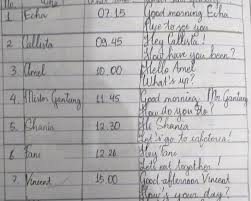 1 Echa 07.15 Good morning Echa
Nice to see you
2 Callista 09.45 Hey Callista!
How have you been?
3 Amel 10.00 Hello Amel
What's up?
4. Mister Ganteng 11.45 Good morning, Mr. Ganteng
How do you do?
5. Shania 12.30 Hi Shania
Let's go to cafetaria!
6 Tani 12.26 Hey Tani
Let's eat together!
7. Vincent 15.00 Good afternoon Vincent
How's your day?